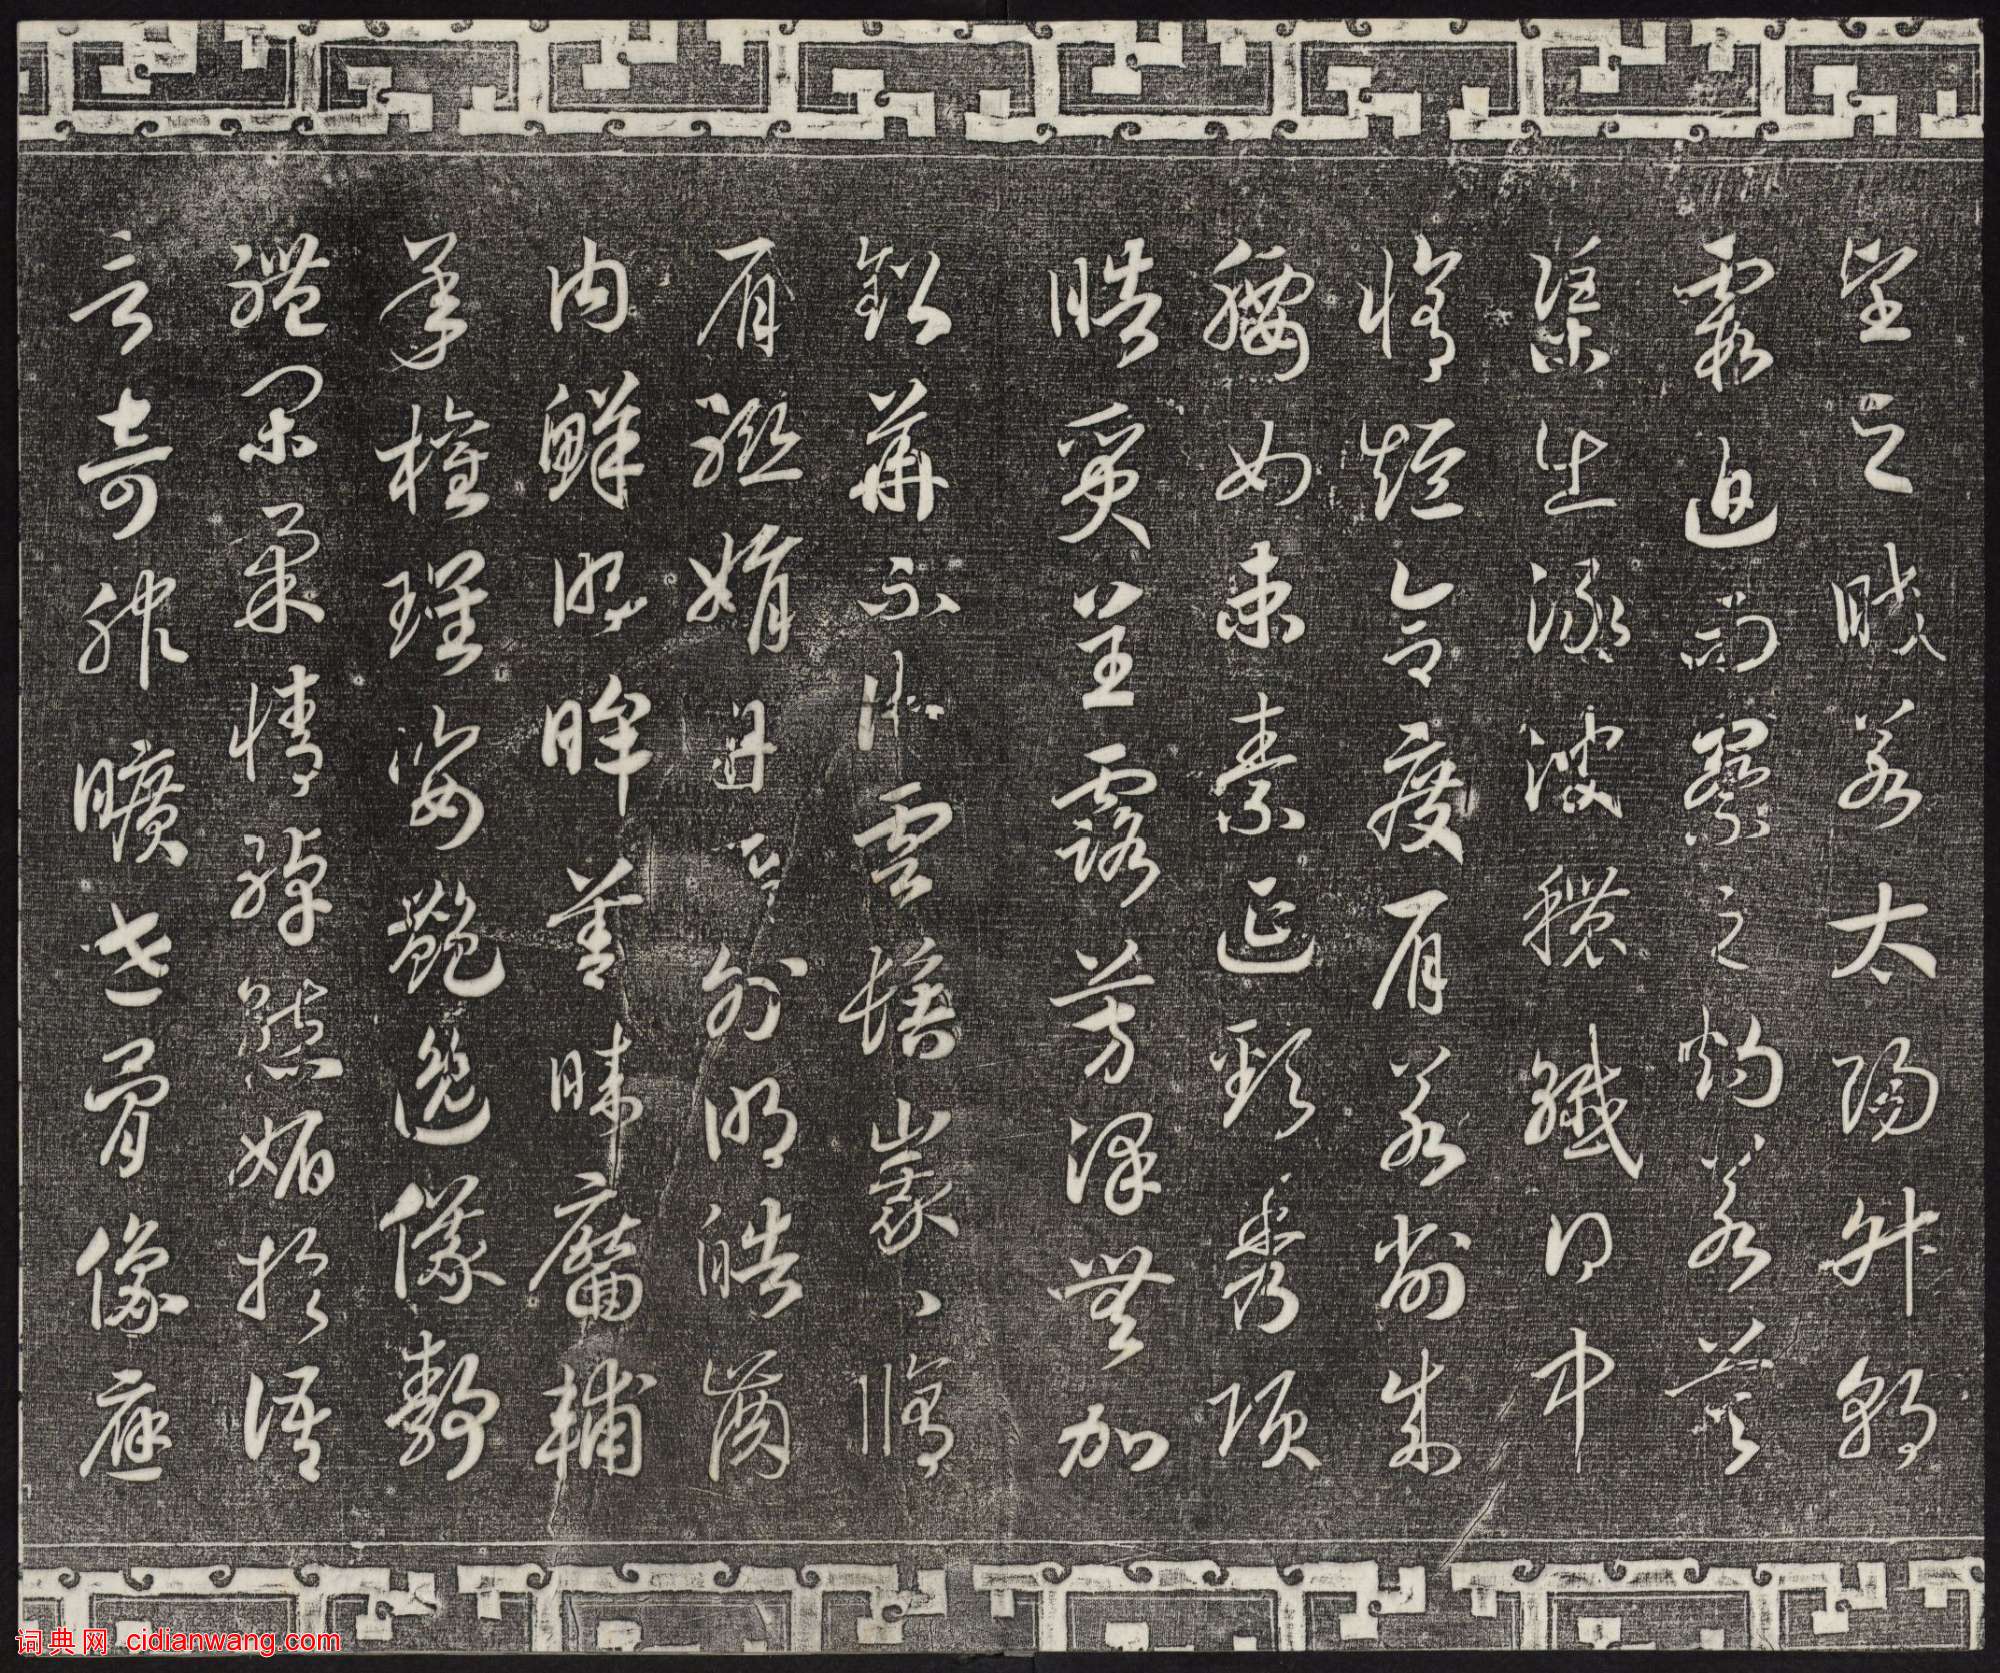 望之皎若太陽升朝
霞迫而察之灼若芙
蕖出淥波穠纖得中
脩短合度肩若削成
腰如束素延頸秀項
皓質呈露芳澤無加
鉛華不御雲髻峩〻脩
眉聯娟丹唇外朗皓齒
內鮮明眸善睞靨輔
承權瓌姿艷逸儀靜
體閑柔情綽態媚於語
言奇服曠世骨像應
词典网 cidianwang.com